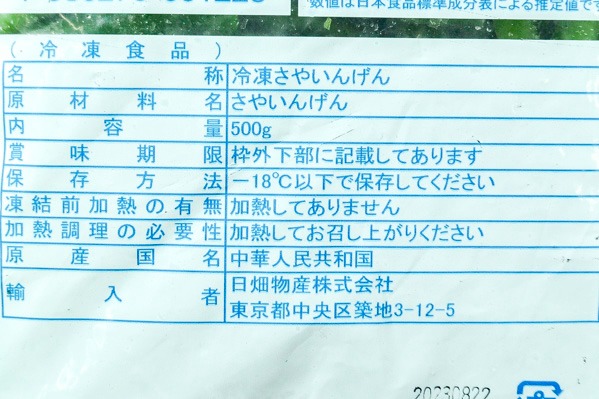 *数値は日本食品標準成分表による推定値です
(冷凍食品)
名称 冷凍さやいんげん
原材料名 さやいんげん
内容量 500g
賞味期限 枠外下部に記載してあります
保存方法 -18℃以下で保存してください
凍結前加熱の有無 加熱してありません
加熱調理の必要性 加熱してお召し上がりください
原産国名 中華人民共和国
輸入者 日畑物産株式会社
東京都中央区築地3-12-5
20230822